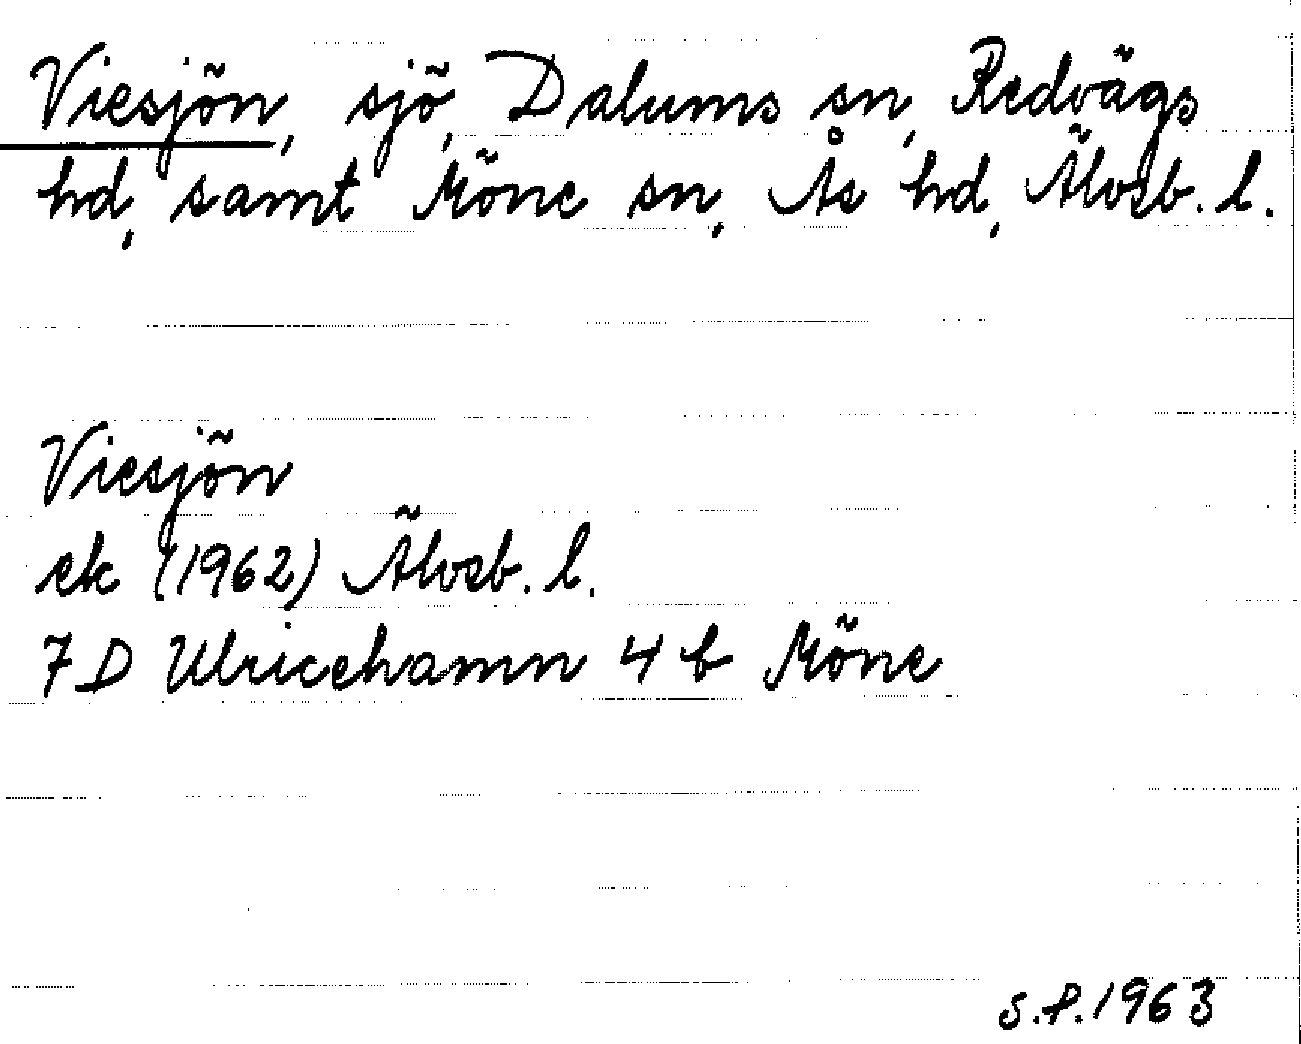 Viesjön, sjö, Dalums sn, Redvägs
hd, samt Möne sn, Ås hd, Älvsb. l.
Viesjön
ek (1962) Älvsb. l.
7 D Ulricehamn 4 b Möne
S.P. 1963